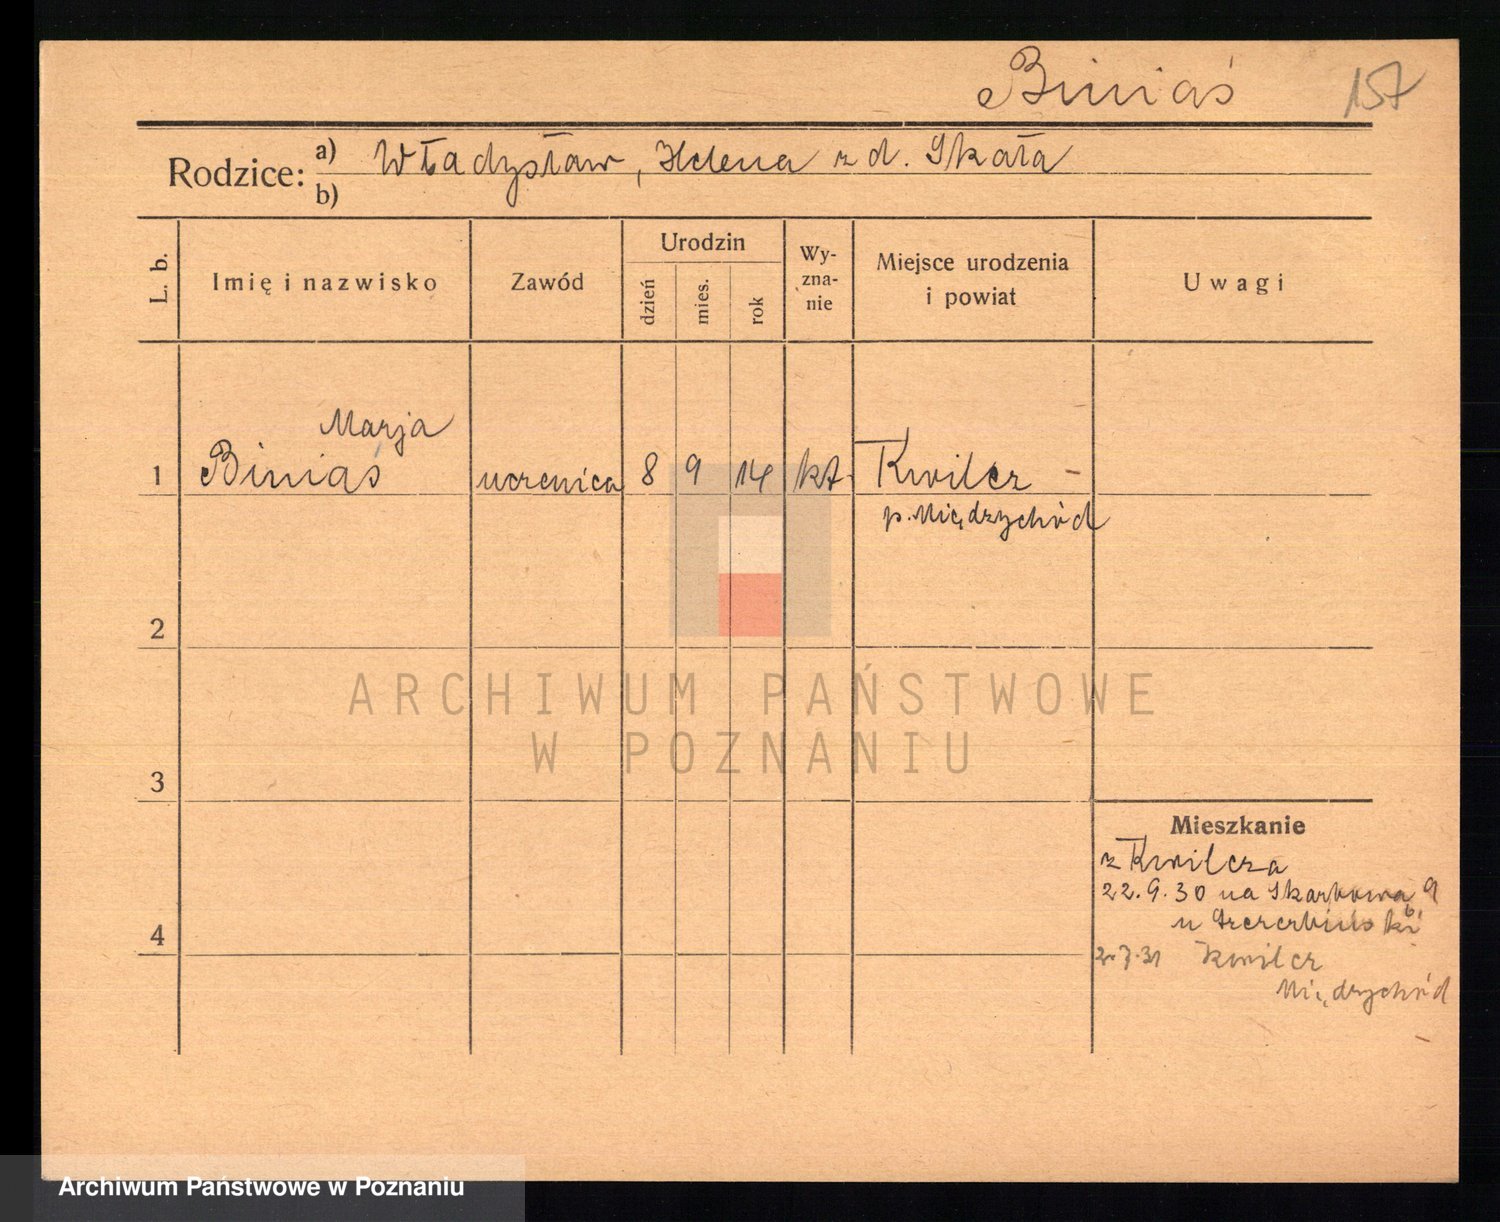 Biniaś 157
Rodzice: a) Władysław, Helena z d. Skała
b)
L. b. Imię i nazwisko Zawód Urodzin dzień mies. rok Wy-zna-nie Miejsce urodzenia i powiat Uwagi
Marja
1 Biniaś uczenica 8 9 14 kt. Kwilcz -
p. Międzychód
2
ARCHIWUM PAŃSTWOWE
W POZNANIU
3
Mieszkanie
z Kwilcza
22.9.30 na Skarbowa 9
u Szczerbińskiś
4
2.7.31 Kwilcz
Międzychód
Archiwum Państwowe w Poznaniu